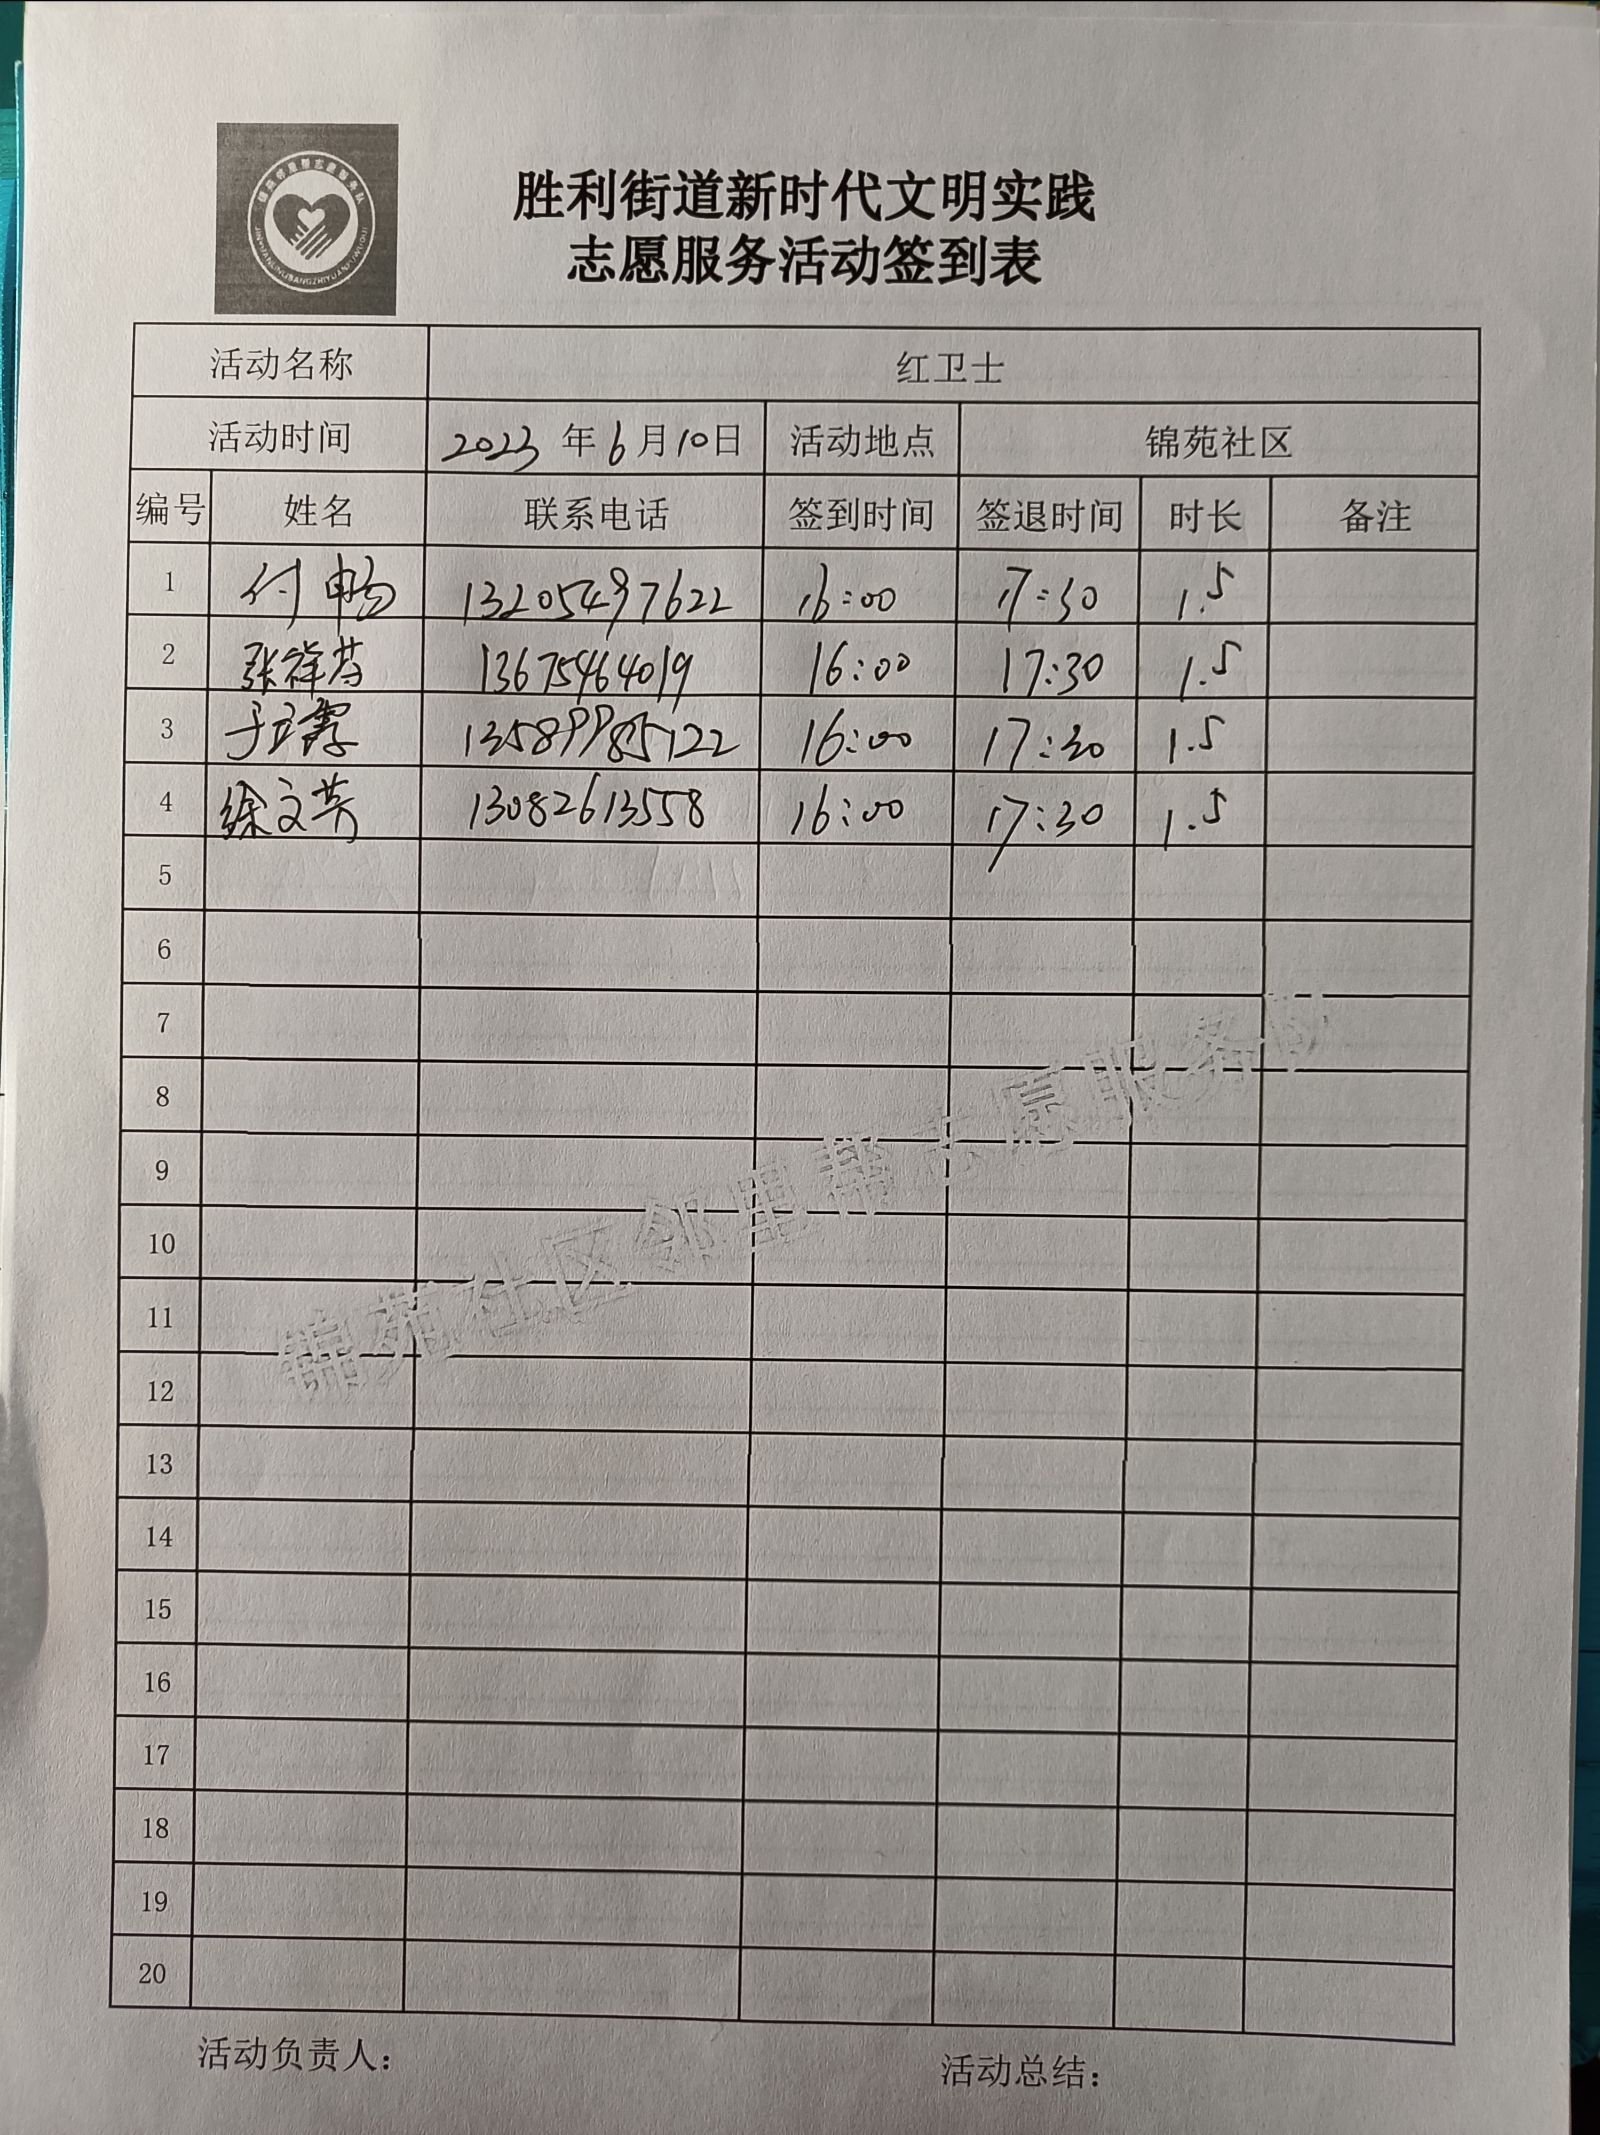 锦苑邻里帮志愿服务队
胜利街道新时代文明实践
志愿服务活动签到表
活动名称 红卫士
活动时间 2023年6月10日 活动地点 锦苑社区
编号 姓名 联系电话 签到时间 签退时间 时长 备注
1 付畅 13205497622 16:00 17:30 1.5
2 张祥芬 13675464019 16:00 17:30 1.5
3 于立霞 13589985122 16:00 17:30 1.5
4 徐文芳 13082613558 16:00 17:30 1.5
5
6
7
8
9
10
11
12
13
14
15
16
17
18
19
20
锦苑社区邻里帮志愿服务队
活动负责人：
活动总结：